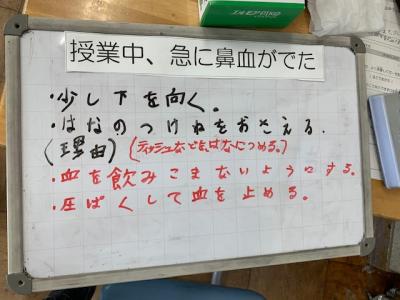 授業中、急に鼻血がでた
・少し下を向く。
・はなのつけねをおさえる.
(理由)(ティッシュなどをはなにつめる。)
・血を飲みこまないようにする。
・圧ぱくして血を止める。